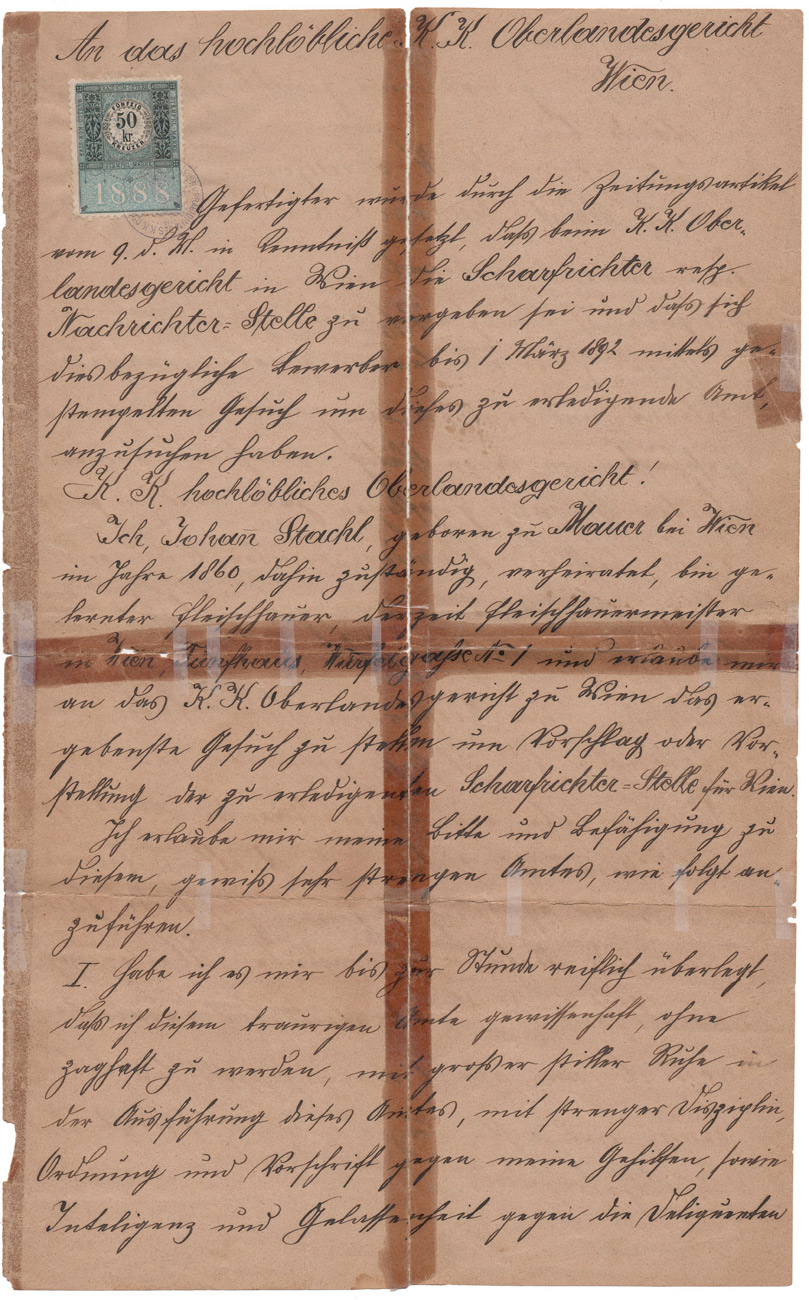 An das hochlöbliche K. K. Oberlandesgericht
Wien.
FÜNFZIG
50
kr.
KREUZER
STEMPEL MARKE
1888
Gefertigter wurde durch die Zeitungsartikel
vom 9. d. M. in Kenntniß gesetzt, daß beim K. K. Ober-
landesgericht in Wien die Scharfrichter resp.
Nachrichter=Stelle zu vergeben sei und daß sich
diesbezügliche Bewerber bis 1 März 1892 mittels ge-
stempelten Gesuch um dieses zu erledigende Amt,
anzusuchen haben.
K. K. hochlöbliches Oberlandesgericht!
Ich, Johan̄ Stachl, geboren zu Mauer bei Wien
im Jahre 1860, dahin zuständig, verheiratet, bin ge-
lernter Fleischhauer, derzeit Fleischhauermeister
in Wien, Fünfhaus, Würfelgasse No 1 und erlaube mir
an das K. K. Oberlandesgericht zu Wien das er-
gebenste Gesuch zu stellen um Vorschlag oder Vor-
stellung der zu erledigenten Scharfrichter=Stelle für Wien.
Ich erlaube mir meine Bitte und Befähigung zu
diesem, gewiß sehr strengen Amtes, wie folgt an-
zuführen.
I. Habe ich es mir bis zur Stunde reiflich überlegt,
daß ich diesem traurigen Amte gewissenhaft, ohne
zaghaft zu werden, mit großer stiller Ruhe in
der Ausführung dieses Amtes, mit strenger Disziplin,
Ordnung und Vorschrift gegen meine Gehilfen, sowie
Inteligenz und Gelassenheit gegen die Deliquenten